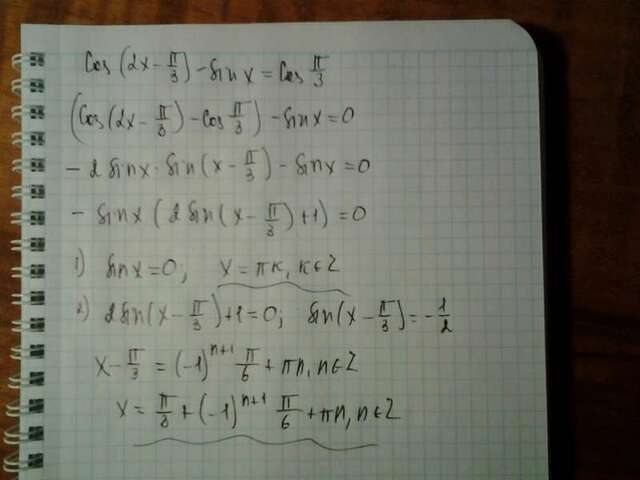 cos(2x − π/3) − sin x = cos π/3
(cos(2x − π/3) − cos π/3) − sin x = 0
− 2 sin x · sin(x − π/3) − sin x = 0
− sin x (2 sin(x − π/3) + 1) = 0
1) sin x = 0; x = πk, k ∈ Z
2) 2 sin(x − π/3) + 1 = 0; sin(x − π/3) = −1/2
x − π/3 = (−1)^{n+1} π/6 + πn, n ∈ Z
x = π/3 + (−1)^{n+1} π/6 + πn, n ∈ Z